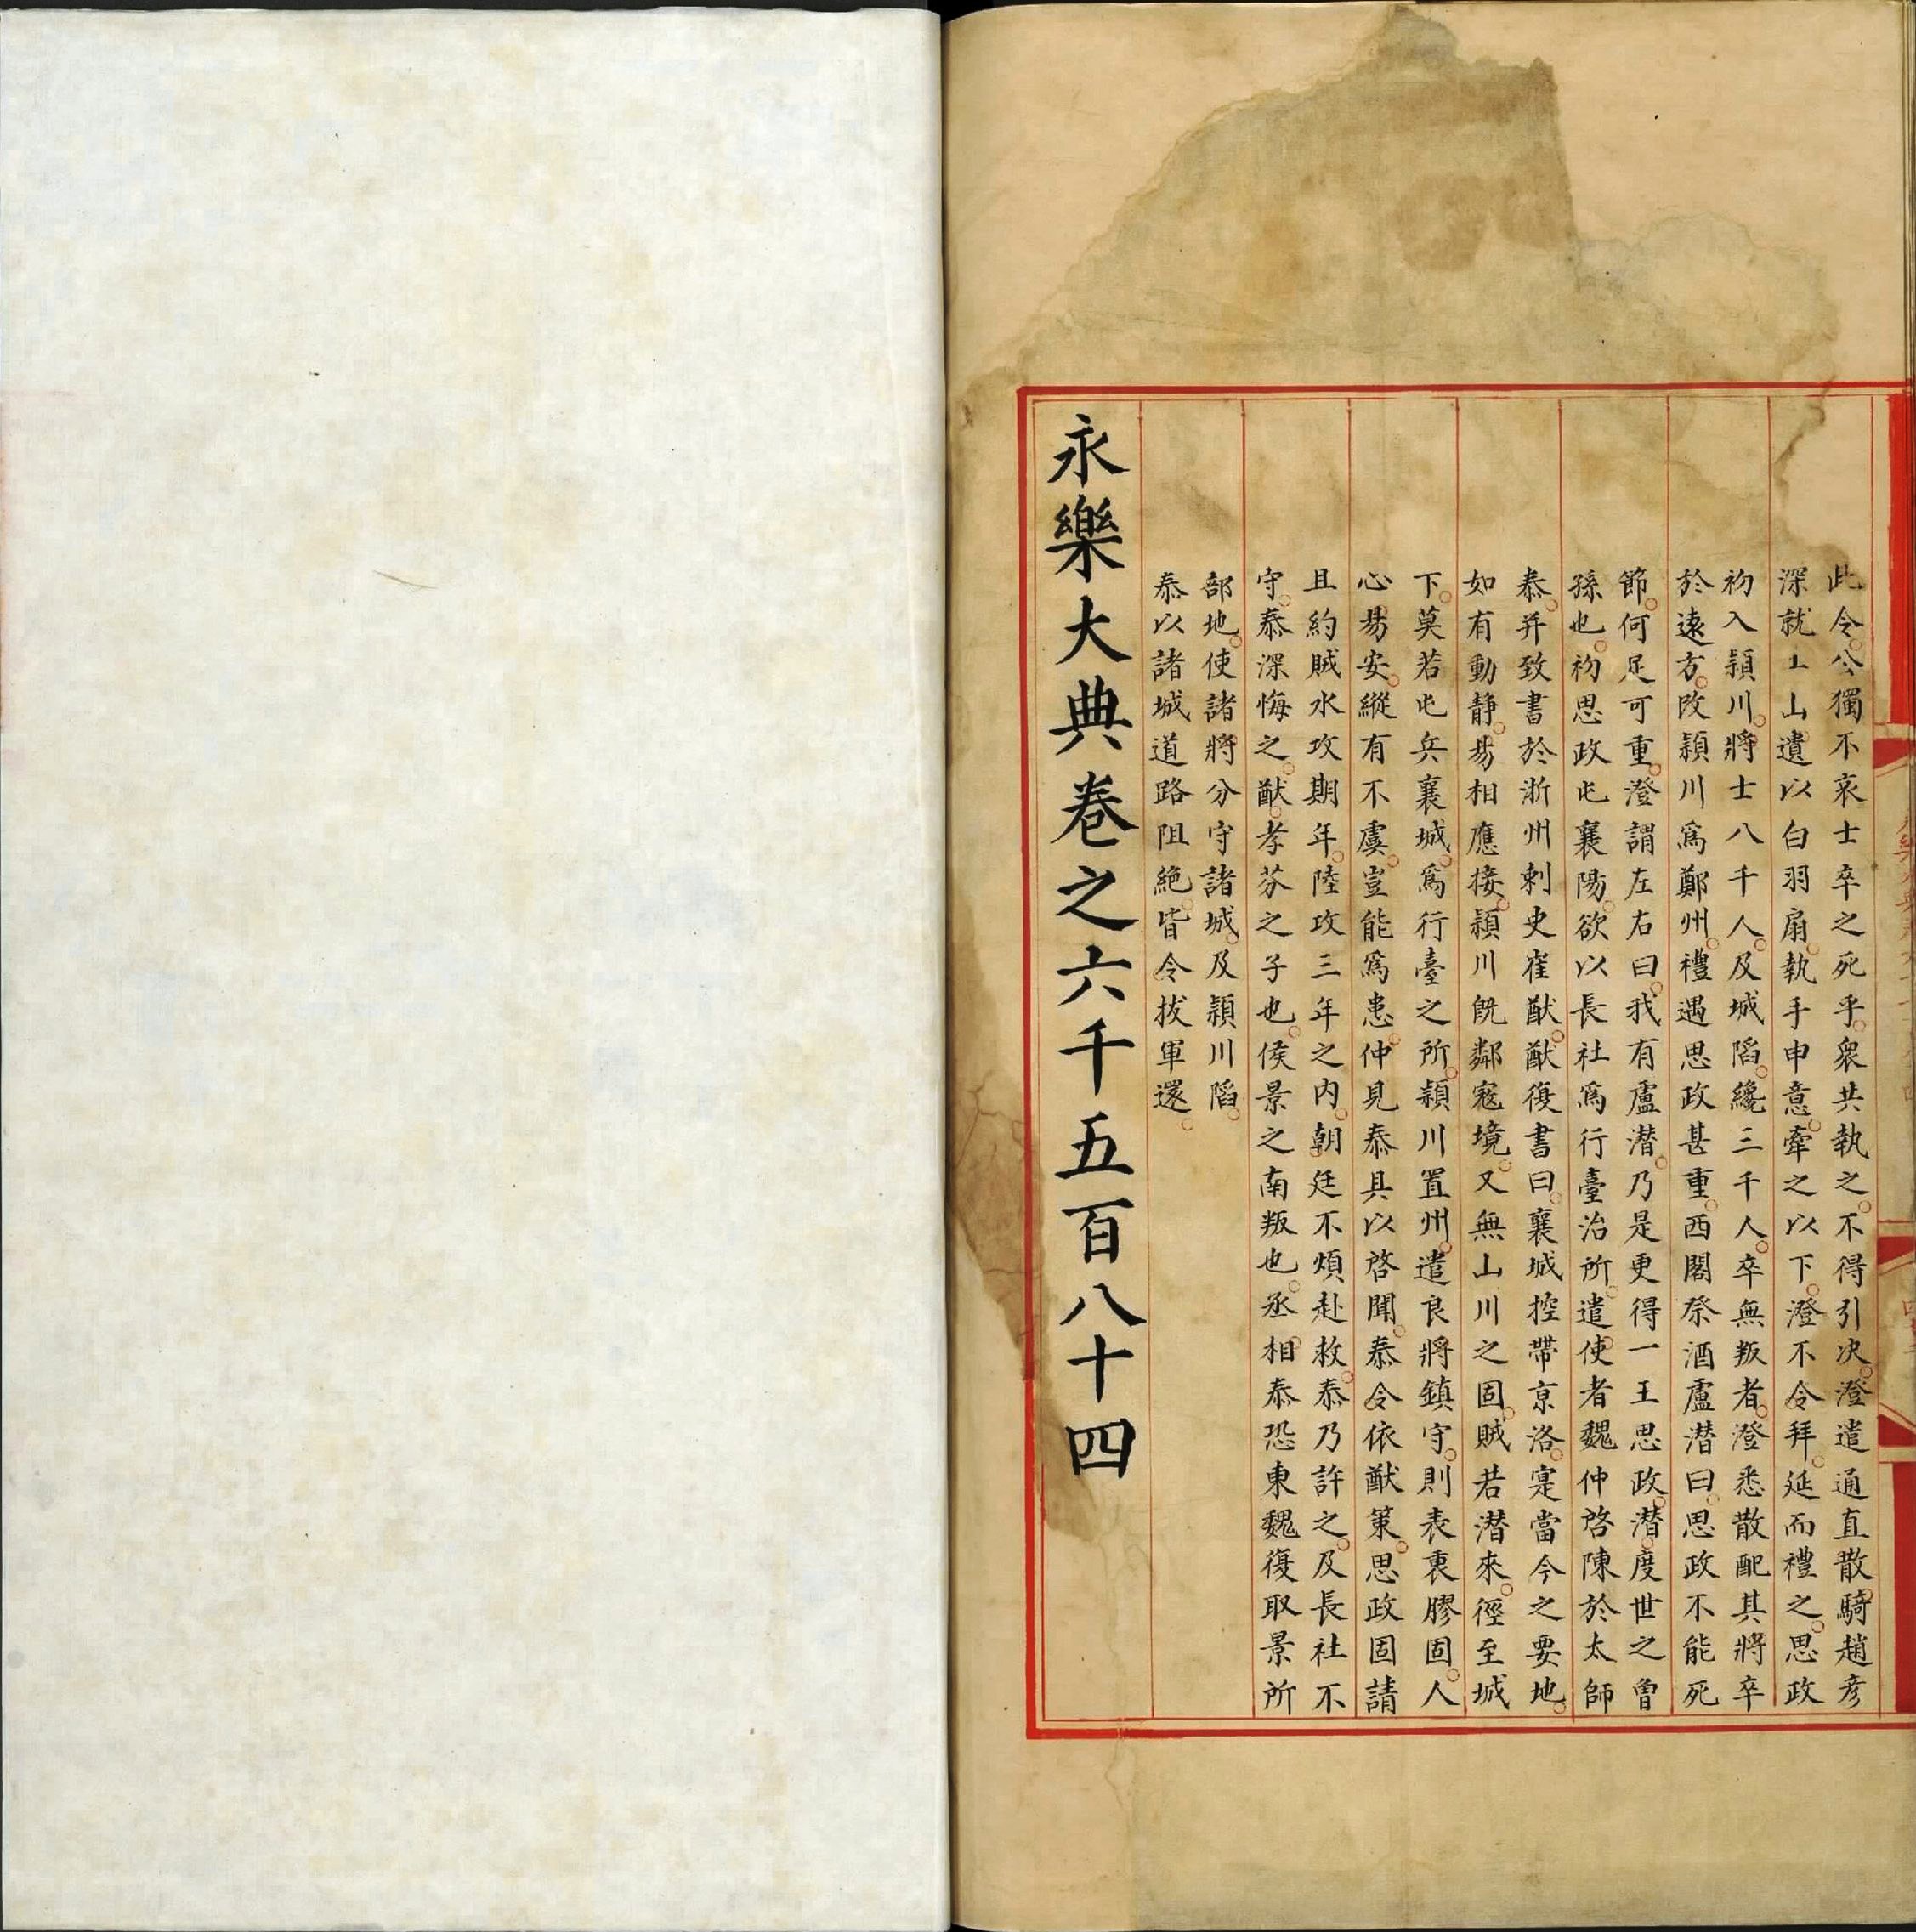 此令公獨不哀士卒之死乎衆共執之不得引决澄遣通直散騎趙彦
深就土山遺以白羽扇執手申意牽之以下澄不令拜延而禮之思政
初入潁川將士八千人及城陷纔三千人卒無叛者澄悉散配其將卒
於遠方改潁川爲鄭州禮遇思政甚重西閤祭酒盧潜曰思政不能死
節何足可重澄謂左右曰我有盧潜乃是更得一王思政潜度世之曽
孫也初思政屯襄陽欲以長社爲行臺治所遣使者魏仲啓陳於太師
泰并致書於淅州刺史崔猷猷復書曰襄城控帶京洛寔當今之要地
如有動静易相應接潁川旣鄰寇境又無山川之固賊若潜來徑至城
下莫若屯兵襄城爲行臺之所潁川置州遣良將鎮守則表裏膠固人
心易安縱有不虞豈能爲患仲見泰具以啓聞泰令依猷策思政固請
且約賊水攻期年陸攻三年之内朝廷不煩赴救泰乃許之及長社不
守泰深悔之猷孝芬之子也侯景之南叛也丞相泰恐東魏復取景所
部地使諸將分守諸城及潁川陷
泰以諸城道路阻絶皆令拔軍還
永樂大典卷之六千五百八十四